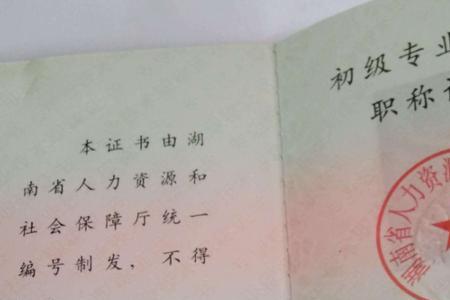 本证书由湖
南省人力资源和
社会保障厅统一
编号制发，不得
初级专业
职称
湖南省人力资源